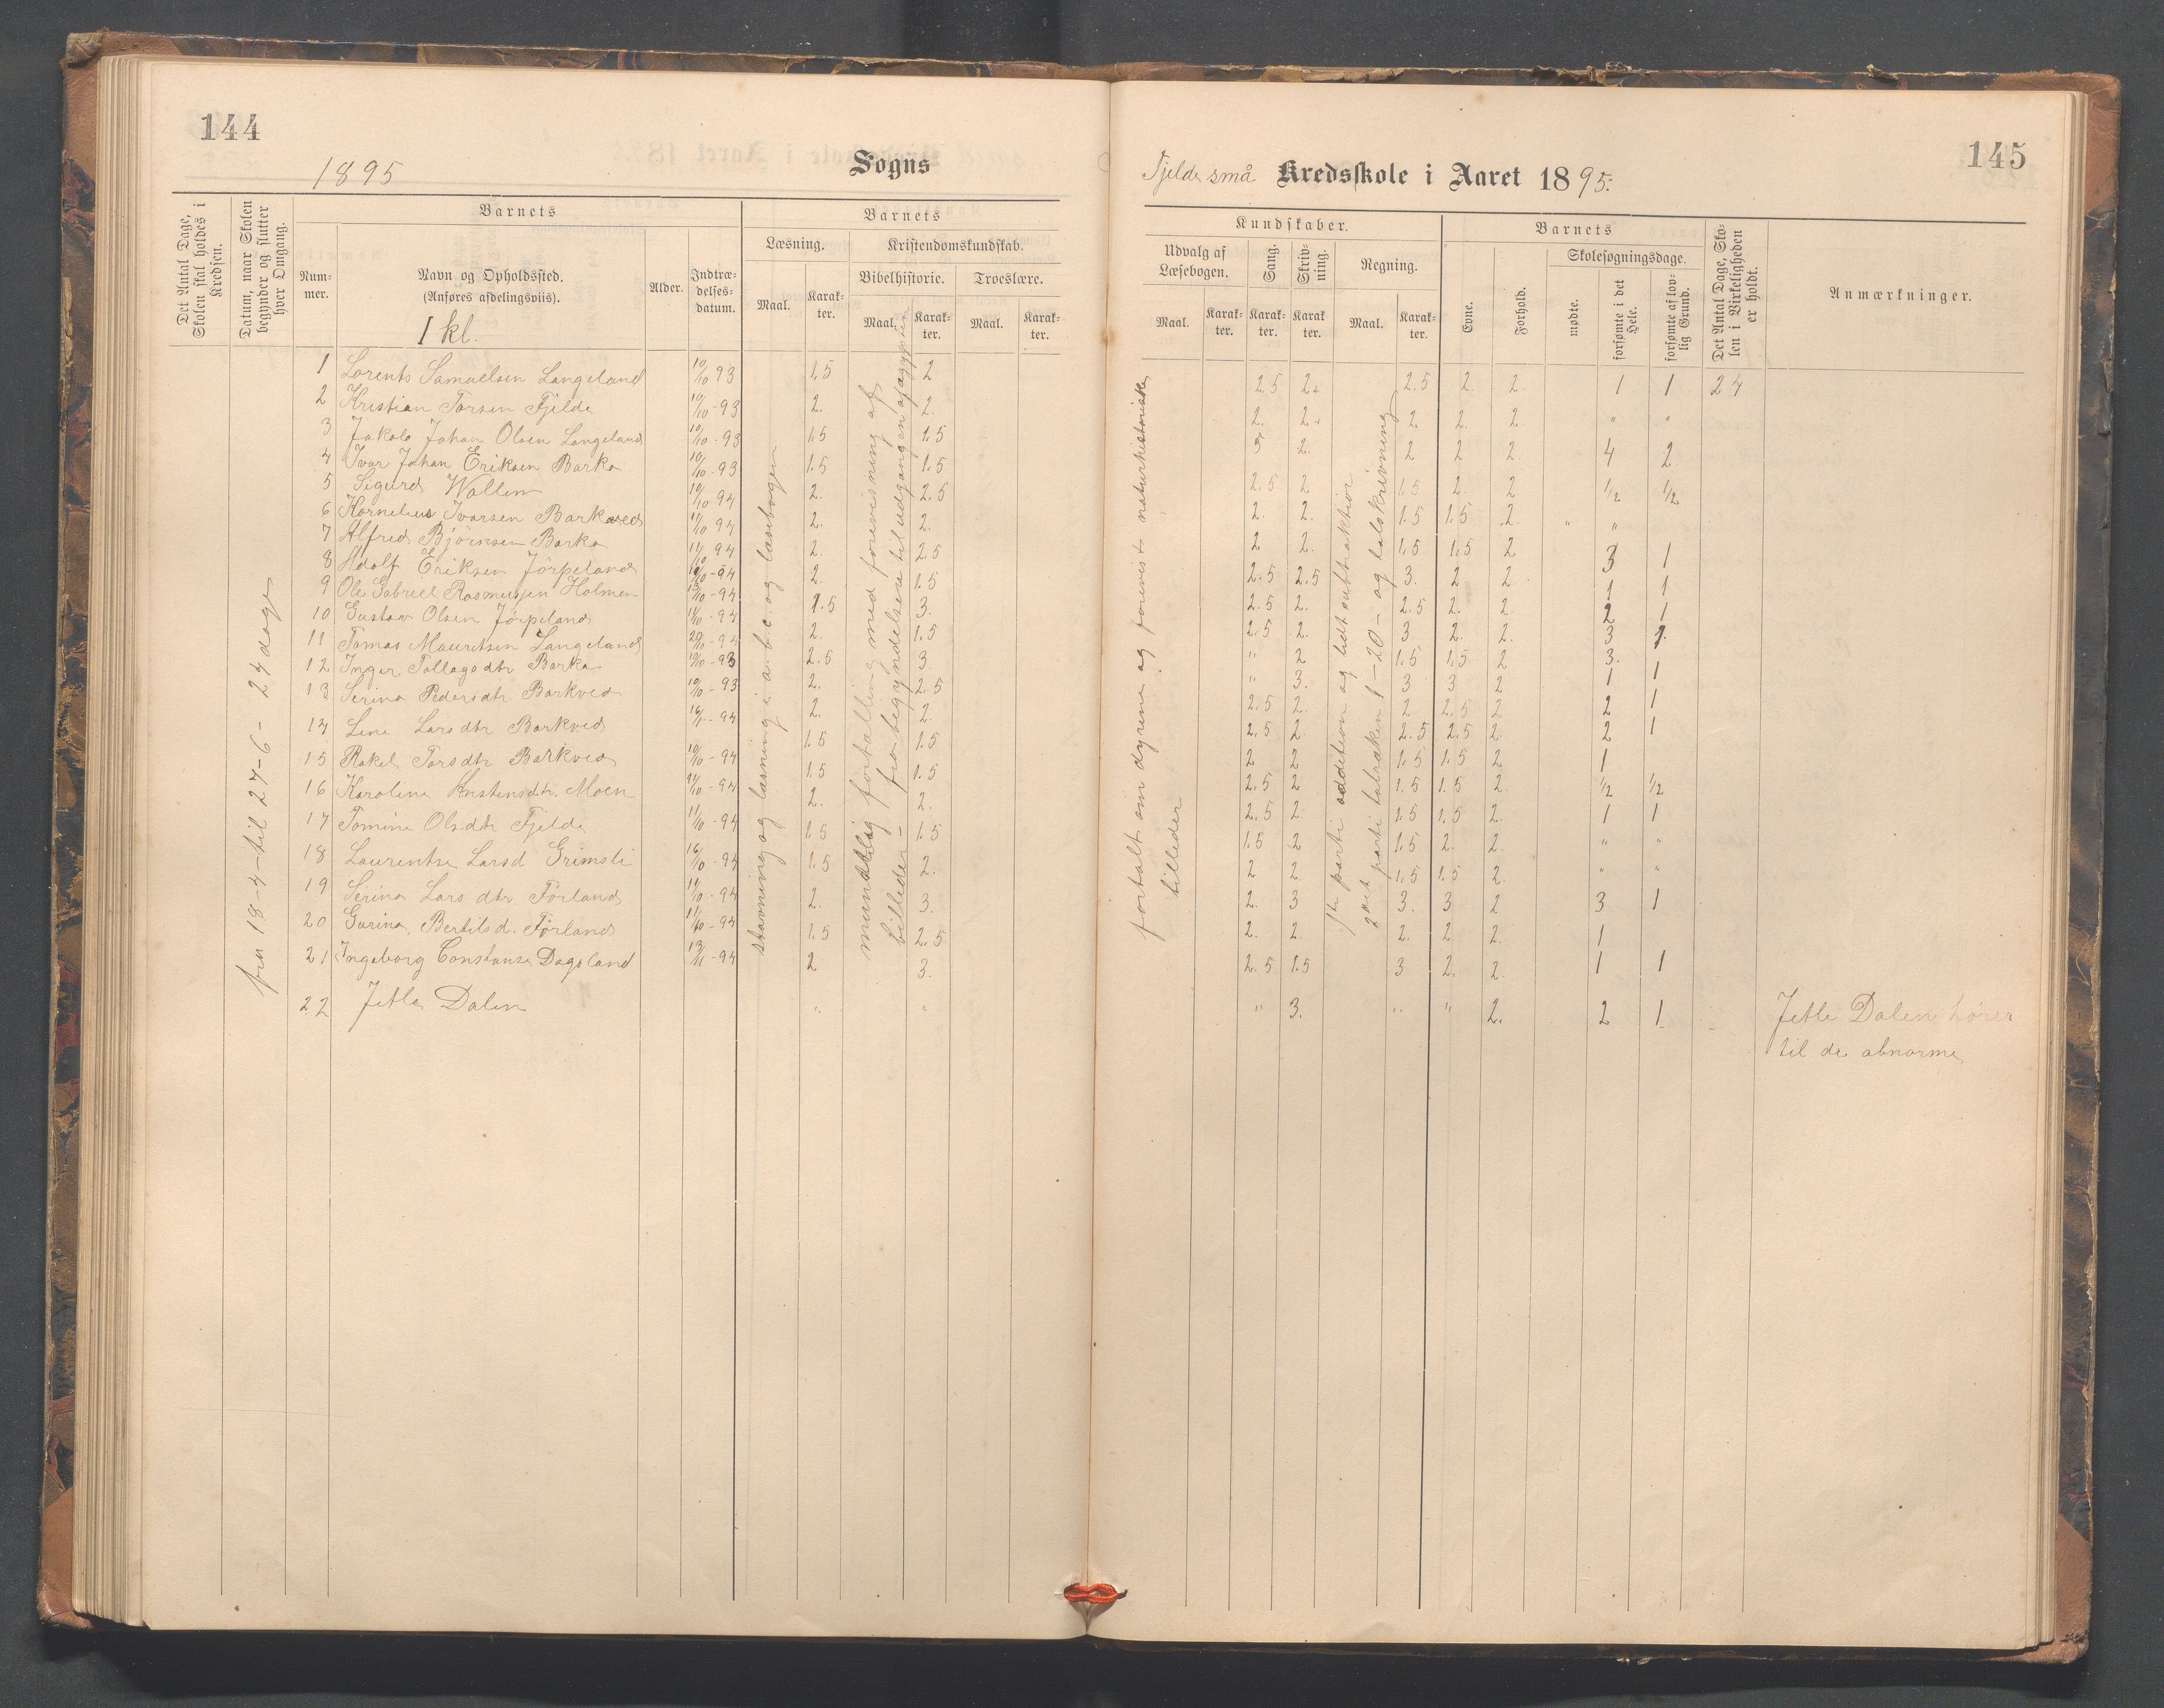 144
1895
Sogns
Det Antal Dage, Skolen skal holdes i Kredsen.
Datum, naar Skolen begynder og slutter hver Omgang.
Barnets
Num-mer.
Navn og Opholdssted.
(Anføres afdelingsviis).
I kl.
Alder.
Indtræ-delses-datum.
Barnets
Læsning.
Maal.
Karak-ter.
Kristendomskundskab.
Bibelhistorie.
Maal.
Karak-ter.
Troeslære.
Maal.
Karak-ter.
fra 18-4-til 27-6- 24 dage
1 Lorents Samuelsen Langeland 10/10 93 1,5 2
2 Kristian Torsen Fjelde 10/10-93 2. 2.
3 Jakob Johan Olsen Langeland 10/10-93 1,5 1.5
4 Ivar Johan Eriksen Barka 10/10-93 1.5 1.5
5 Sigurd Wallem 10/10 94 2. 2.5
6 Kornelius Ivarsen Barkved 11/10 94 2. 2.
7 Alfred Bjørnsen Barka 11/10 94 2. 2.5
8 Adolf Eriksen Jörpeland 10/10-94 2. 1.5
9 Ole Gabriel Rasmussen Holmen 1.5 3.
10 Gustav Olsen Jørpeland 2. 1.5
11 Tomas Mauritsen Langeland 2.5 3.
12 Inger Tollagsdtr Barka 10/10-93 2. 2.5
13 Serina Pedersdtr Barkved 10/10-93 2. 2.
14 Lene Larsdtr Barkved 1.5 1.5
15 Rakel Torsdtr Barkved 10/10-94 1.5 1.5
16 Karoline Kristensdtr. Moen 2. 2.
17 Tomine Olsdtr Fjelde 11/10-94 1.5 1.5
18 Laurentse Larsd Grimsli 1.5 2.
19 Serina Larsdtr Förland 11/10-94 2. 3.
20 Gurina Bertilsd. Førland 11/10-94 1.5 2.5
21 Ingeborg Constanse Dagsland 2 3.
22 Jetle Dalen " "
stavning og læsning i a-b-c og læsebogen
mundtlig fortælling med forevisning af
billeder - fra begyndelsen til udgangen af ægypten
145
Fjelde små Kredsskole i Aaret 1895.
Kundskaber.
Udvalg af Læsebogen.
Maal.
Karak-ter.
Sang.
Karak-ter.
Skriv-ning.
Karak ter.
Regning.
Maal.
Karak-ter.
Barnets
Evne.
Forhold.
Skolesøgningsdage.
mødte.
forsømte i det Hele.
forsømte af lov-lig Grund.
Det Antal Dage, Sko-len i Virkeligheden er holdt.
Anmærkninger.
fortalt om dyrene og forevist naturhistoriske
billeder
1te parti addition og lidt subtraktion
2det parti talrækken 1-20- og talskrivning
2.5 2. 2.5 2. 2. 1 1 24
2. 2. 2 2. 2. " "
3 2. 2 2 2. 4 2
2.5 2 1.5 2. 2 1/2 1/2
2. 2. 1.5 1.5 2. " "
2 2. 1.5 1.5 2 3 1
2.5 2.5 3. 2 2 1 1
2.5 2. 2.5 2. 2. 2 1
2.5 2. 3. 2. 2. 3 1
" 2 1.5 1.5 2 3.
" 3. 3 3 2 1 1
2.5 2. 2 2.5 2 2 1
2.5 2 2.5 2.5 2. 2 1
2 2 1.5 1.5 2 1
2.5 2 1.5 1.5 2. 1/2 1/2
2.5 2. 1.5 1.5 2. 1 1
1.5 2 1.5 2. 2. " "
2 2. 1.5 1.5 2. " "
2. 3 3. 3 2 3 1
2. 2. 2. 2. 2. 1
2.5 1.5 3 2. 2. 1 1
" 3. " " 2. 2 1
Jetle Dalen hører
til de abnorme